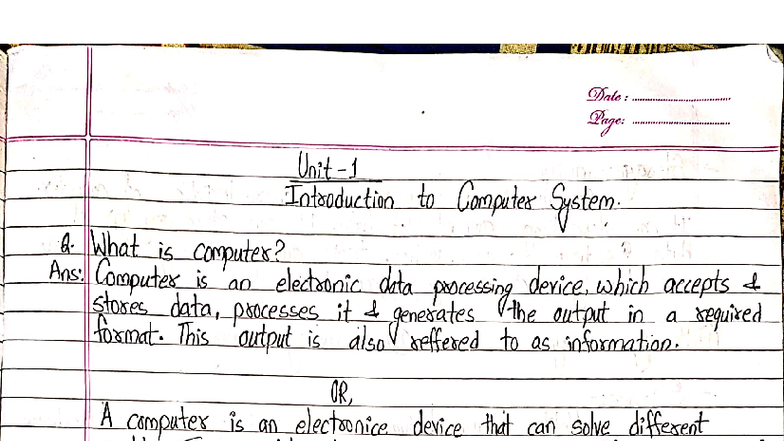 Date: ..............................
Page: ..............................
Unit-1
Introduction to Computer System.
Q. What is computer?
Ans: Computer is an electronic data processing device, which accepts &
stores data, processes it & generates the output in a required
format. This output is also reffered to as information.
OR,
A computer is an electronice device that can solve different